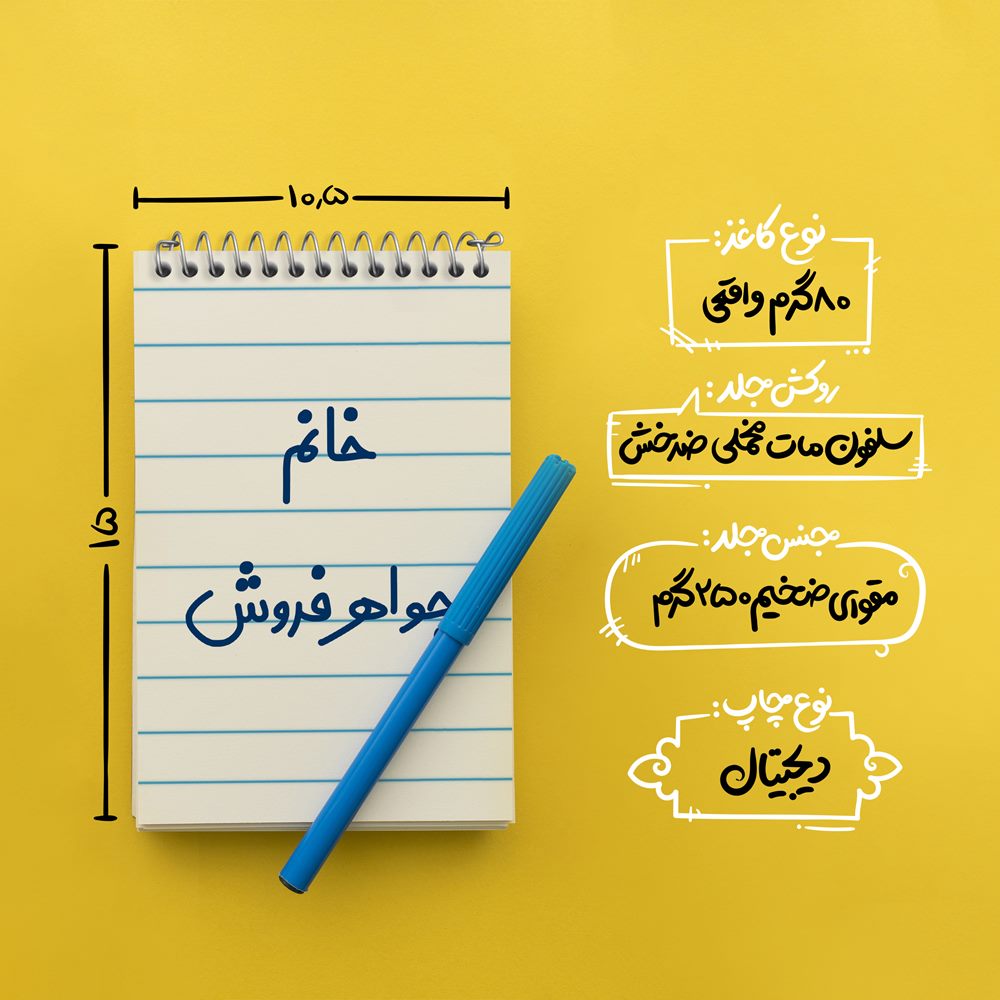 ۱۰٫۵
۱۵
خانم
جواهر فروش
نوع کاغذ:
۸۰ گرم واقعی
روکش جلد:
سلفون مات مخملی ضدخش
جنس جلد:
مقوای ضخیم ۲۵۰ گرم
نوع چاپ:
دیجیتال